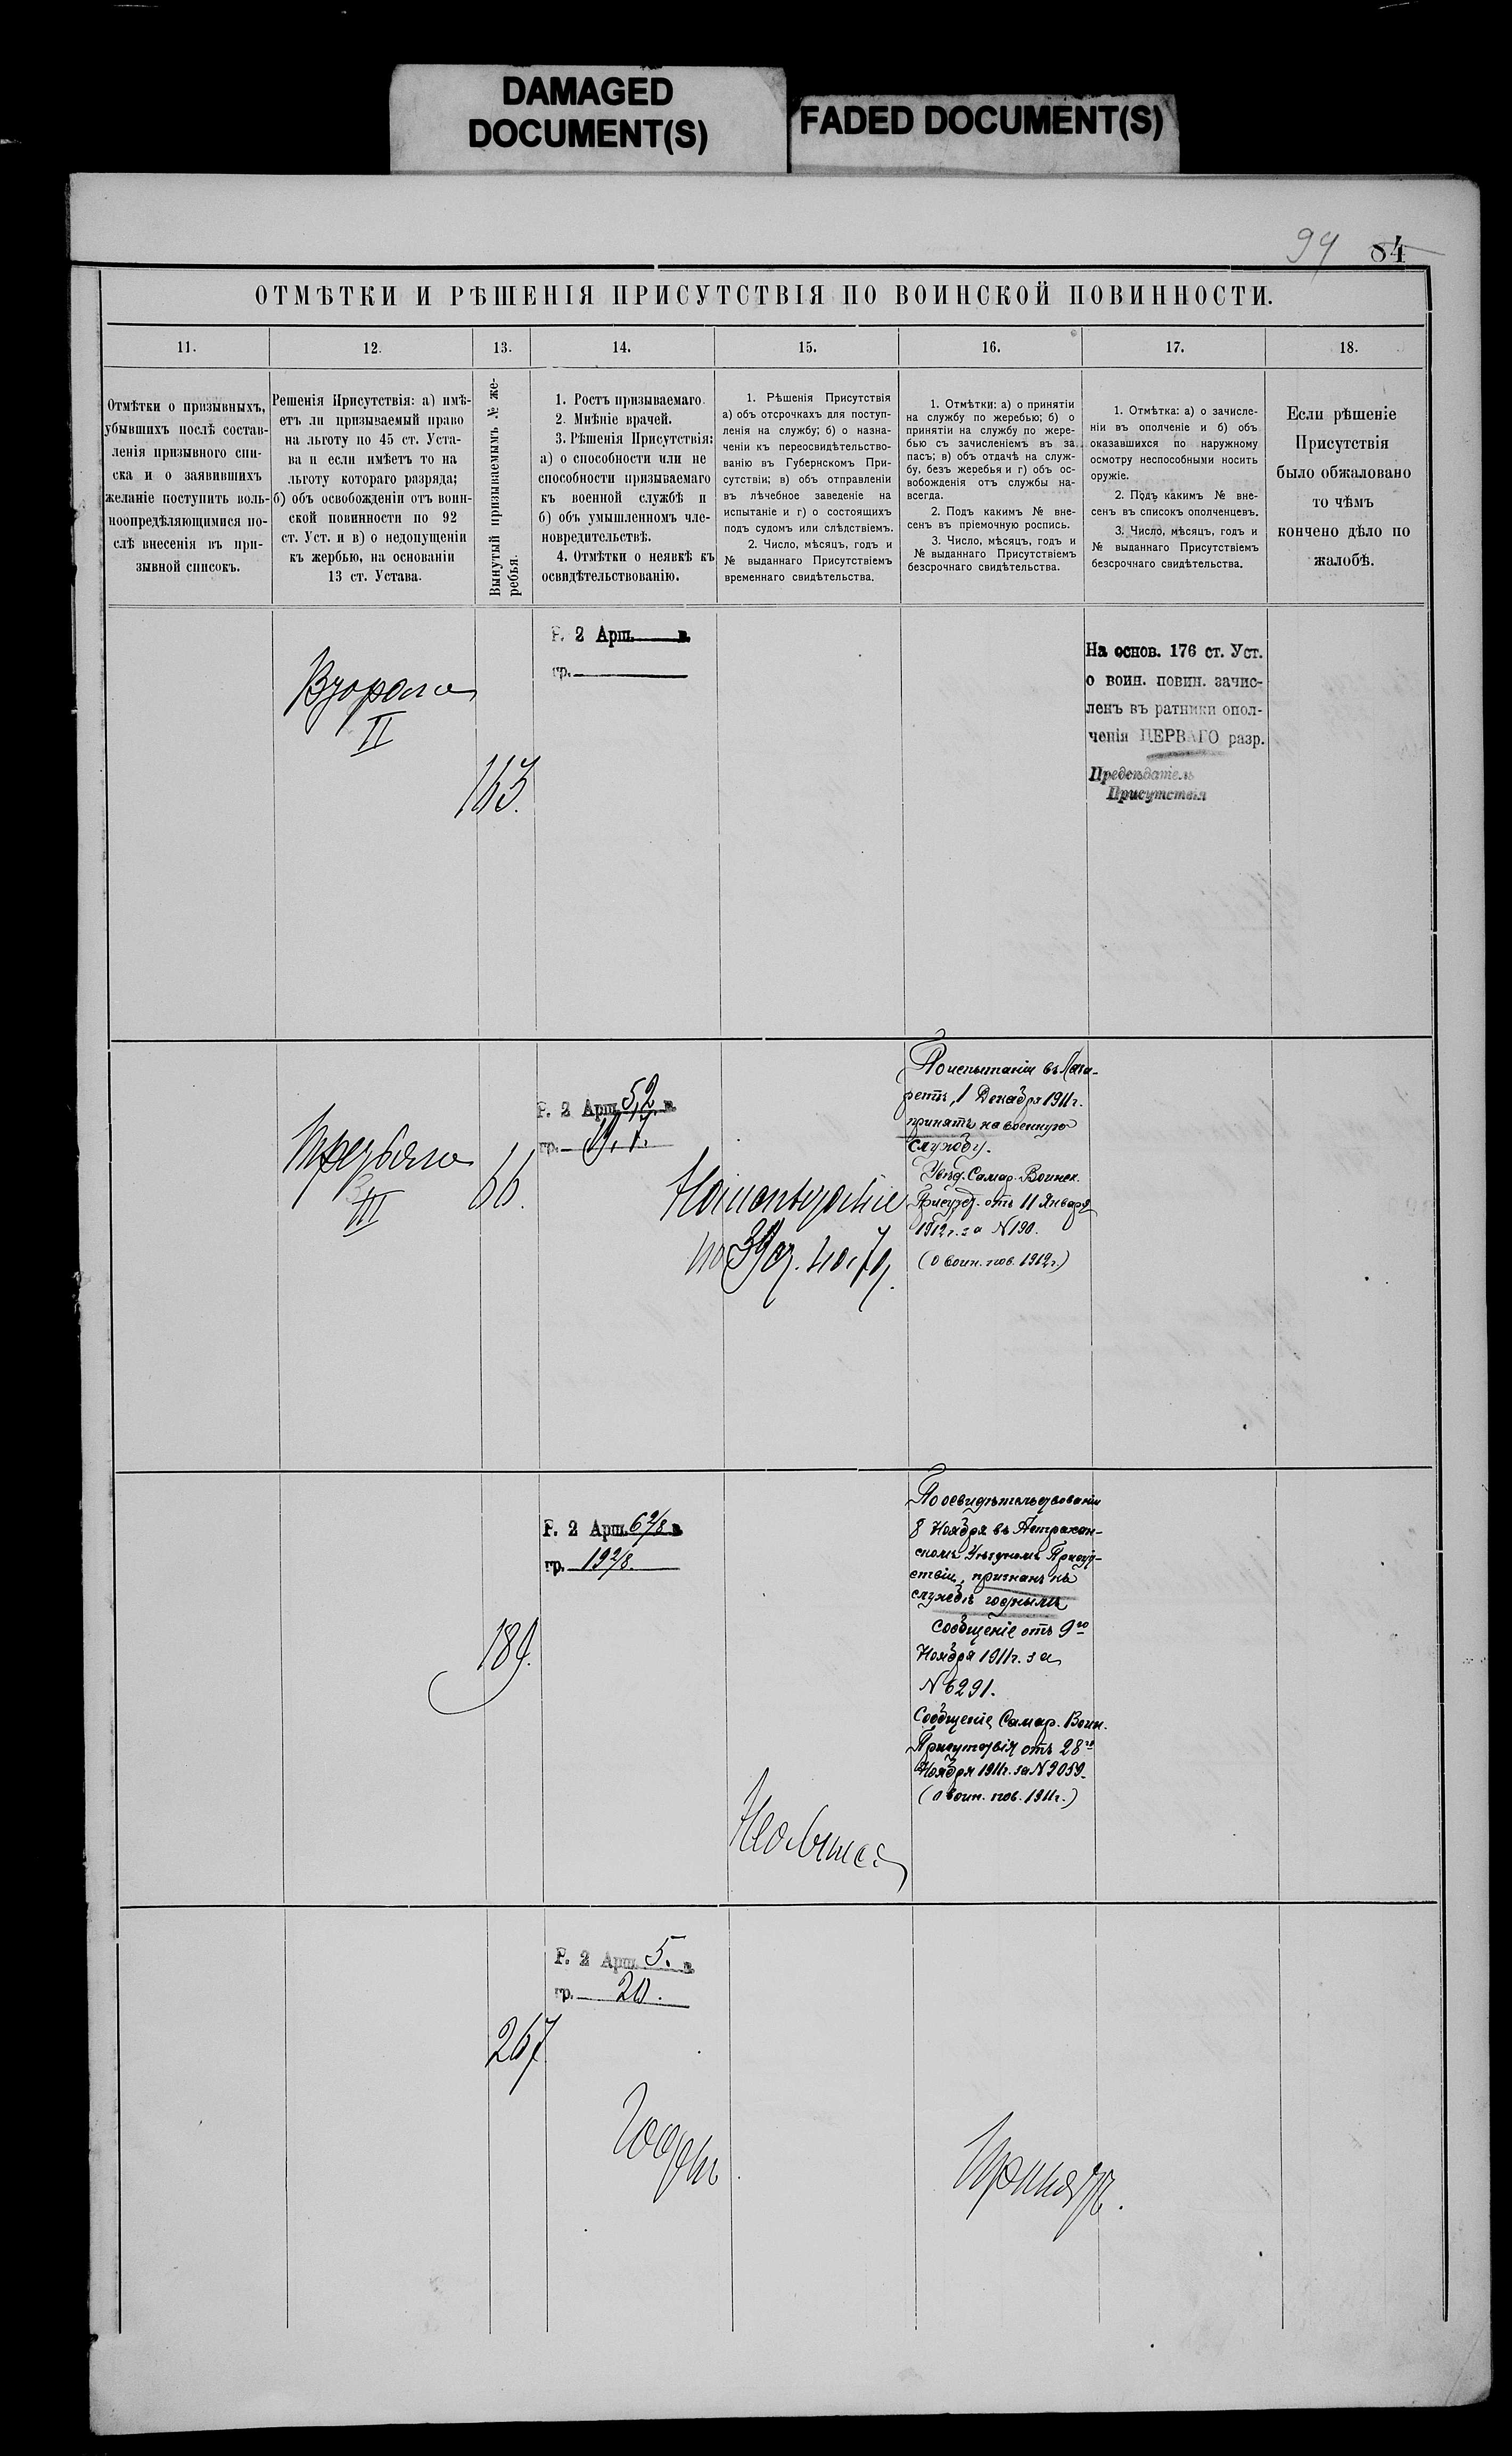 DAMAGED
DOCUMENT(S)
FADED DOCUMENT(S)
94 84
ОТМѢТКИ И РѢШЕНІЯ ПРИСУТСТВІЯ ПО ВОИНСКОЙ ПОВИННОСТИ.
11.
12.
13.
14.
15.
16.
17.
18.
Отмѣтки о призывныхъ,
убывшихъ послѣ состав-
ленія призывного спи-
ска и о заявившихъ
желаніе поступить воль-
ноопредѣляющимися по-
слѣ внесенія въ при-
зывной списокъ.
Решенія Присутствія: а) имѣ-
етъ ли призываемый право
на льготу по 45 ст. Уста-
ва и если имѣетъ то на
льготу котораго разряда;
б) объ освобожденіи отъ воин-
ской повинности по 92
ст. Уст. и в) о недопущеніи
къ жербью, на основаніи
13 ст. Устава.
Вынутый призываемымъ № же-
ребья.
1. Ростъ призываемаго.
2. Мнѣніе врачей.
3. Рѣшенія Присутствія:
а) о способности или не
способности призываемаго
къ военной службѣ и
б) объ умышленномъ чле-
новредительствѣ.
4. Отмѣтки о неявкѣ къ
освидѣтельствованію.
1. Рѣшенія Присутствія
а) объ отсрочкахъ для поступ-
ленія на службу; б) о назна-
ченіи къ переосвидѣтельство-
ванію въ Губернскомъ При-
сутствіи; в) объ отправленіи
въ лѣчебное заведеніе на
испытаніе и г) о состоящихъ
подъ судомъ или слѣдствіемъ.
2. Число, мѣсяцъ, годъ и
№ выданнаго Присутствіемъ
временнаго свидѣтельства.
1. Отмѣтки: а) о принятіи
на службу по жеребью; б) о
принятіи на службу по жере-
бью съ зачисленіемъ въ за-
пасъ; в) объ отдачѣ на служ-
бу, безъ жеребья и г) объ ос-
вобожденія отъ службы на-
всегда.
2. Подъ какимъ № вне-
сенъ въ пріемочную роспись.
3. Число, мѣсяцъ, годъ и
№ выданнаго Присутствіемъ
безсрочнаго свидѣтельства.
1. Отмѣтка: а) о зачисле-
ніи въ ополченіе и б) объ
оказавшихся по наружному
осмотру неспособными носить
оружіе.
2. Подъ какимъ № вне-
сенъ въ списокъ ополченцевъ.
3. Число, мѣсяцъ, годъ и
№ выданнаго Присутствіемъ
безсрочнаго свидѣтельства.
Если рѣшеніе
Присутствія
было обжаловано
то чѣмъ
кончено дѣло по
жалобѣ.
Второго
II
163.
Р. 2 Арш. в.
гр.
На основ. 176 ст. Уст.
о воин. повин. зачис-
ленъ въ ратники опол-
ченія ПЕРВАГО разр.
Предсѣдатель
Присутствія
Третьяго
III
66.
Р. 2 Арш. 5,2 в.
гр.
На испытаніе
по 39 ст.
По испытаніи въ Лаза-
ретѣ, 1 Декабря 1911 г.
принятъ на военную
службу.
Увѣд. Самар. Воинск.
Присутст. отъ 11 Января
1912 г. за № 190.
(О воин. пов. 1912 г.)
189.
Р. 2 Арш. 6 2/8 в.
гр. 19 2/8.
Не явился
По освидѣтельствованіи
8 Ноября въ Астрахан-
скомъ Уѣздномъ Присут-
ствіи, признанъ къ
службѣ годнымъ
Сообщеніе отъ 9го
Ноября 1911 г. за
№ 6291.
Сообщеніе Самар. Воин.
Присутствія отъ 28го
Ноября 1911 г. за № 9059.
(О воин. пов. 1911 г.)
267
Р. 2 Арш. 5. в.
гр. 20.
Годенъ
Принятъ.